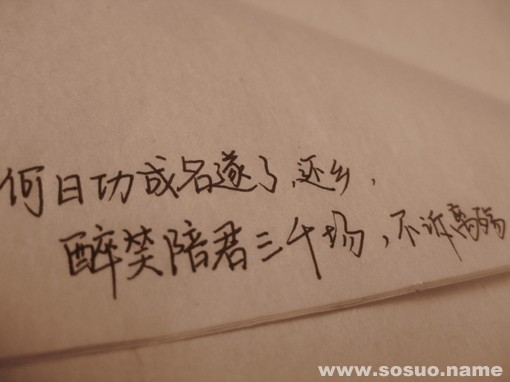 何日功成名遂了,还乡,
醉笑陪君三千场,不诉离殇
www.sosuo.name